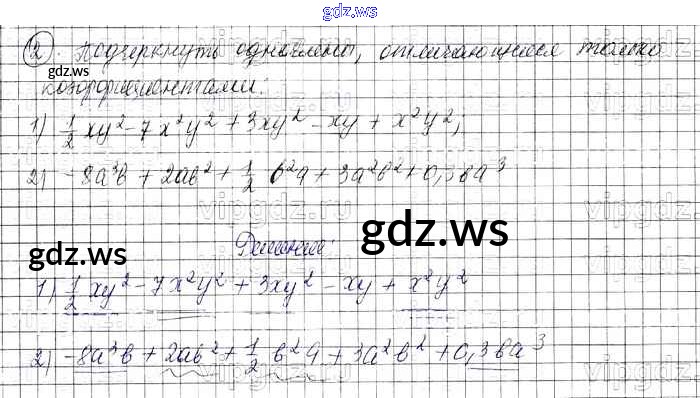 gdz.ws
2. Подчеркнуть одночлены, отличающиеся только
коэффициентами:
1) 1/2 xy² - 7x²y² + 3xy² - xy + x²y²;
2) -8a³b + 2ab² + 1/2 b²a + 3a²b² + 0,3ba³
gdz.ws
Решение:
1) 1/2 xy² - 7x²y² + 3xy² - xy + x²y²
2) -8a³b + 2ab² + 1/2 b²a + 3a²b² + 0,3ba³